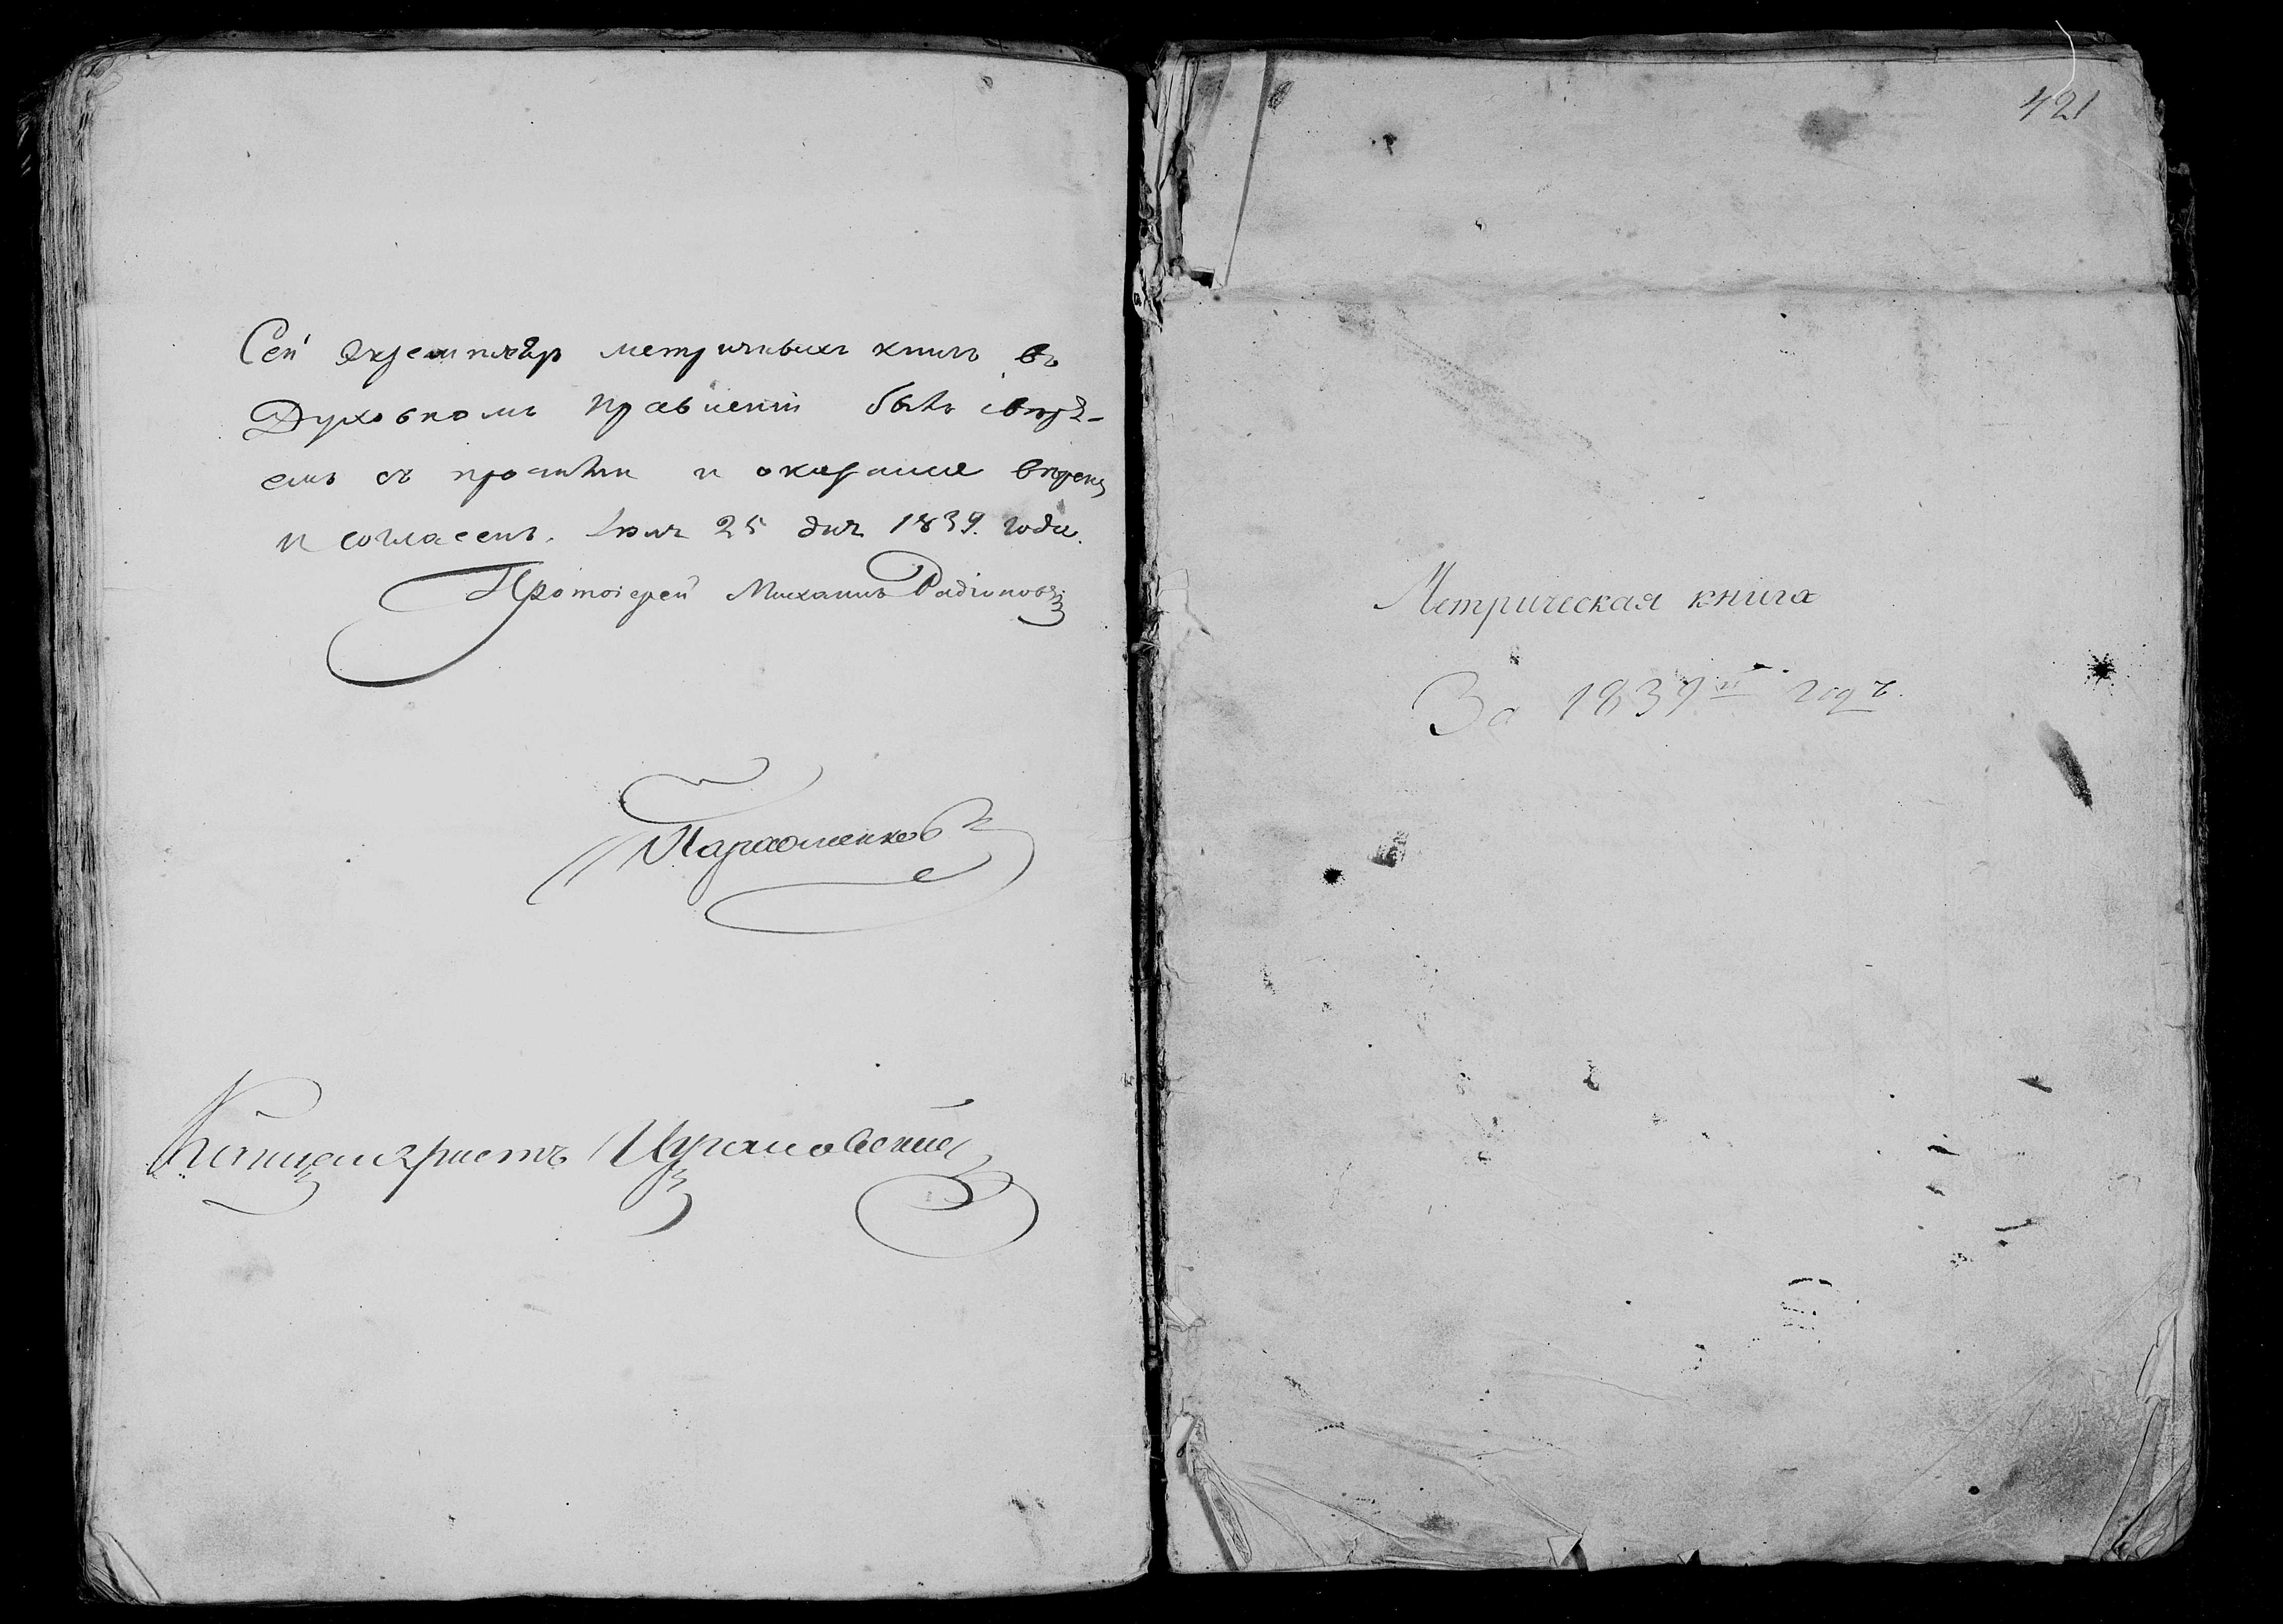 Сей экземпляр метричных книгъ въ
Духовномъ правленіи былъ свѣр-
емъ съ прочими и оказался вѣренъ
и согласенъ. Іюля 25 дня 1839. года.
Протоіерей Михаилъ Радіоновъ
Пархоменковъ
Канцеляристъ
421
Метрическая книга
За 1839й годъ.